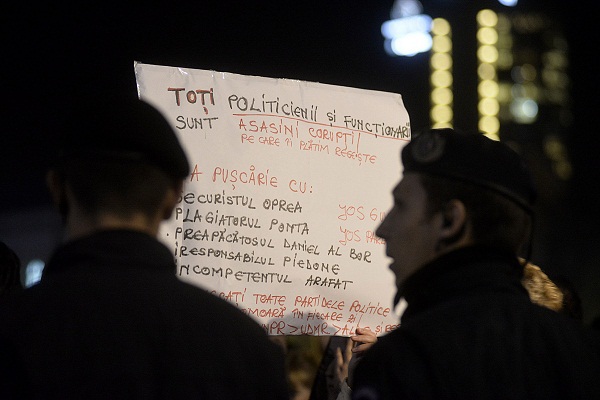 TOȚI POLITICIENII ȘI FUNCȚIONARII
SUNT ASASINI CORUPȚI!
PE CARE ÎI PLĂTIM REGEȘTE
A PUȘCĂRIE CU:
SECURISTUL OPREA
JOS GU
PLAGIATORUL PONTA
JOS
PREAPĂCĂTOSUL DANIEL AL BOR
IRESPONSABILUL PIEDONE
INCOMPETENTUL ARAFAT
TOATE PARTIDELE POLITICE
OMOARĂ ÎN FIECARE ZI
NPR > UDMR >